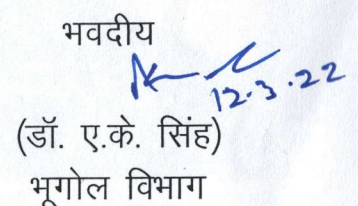 भवदीय
12.3.22
(डॉ. ए.के. सिंह)
भूगोल विभाग